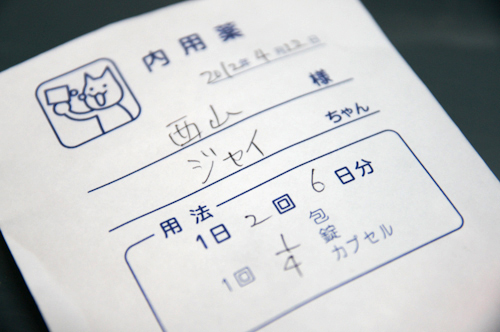 内用薬
2012年4月22日
西山 様
ジャイ ちゃん
用法
1日 2 回 6 日分
1回 1/4 包 錠 カプセル